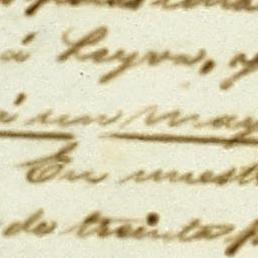 á Leyva, y
á un may
En nuest
do treinta p